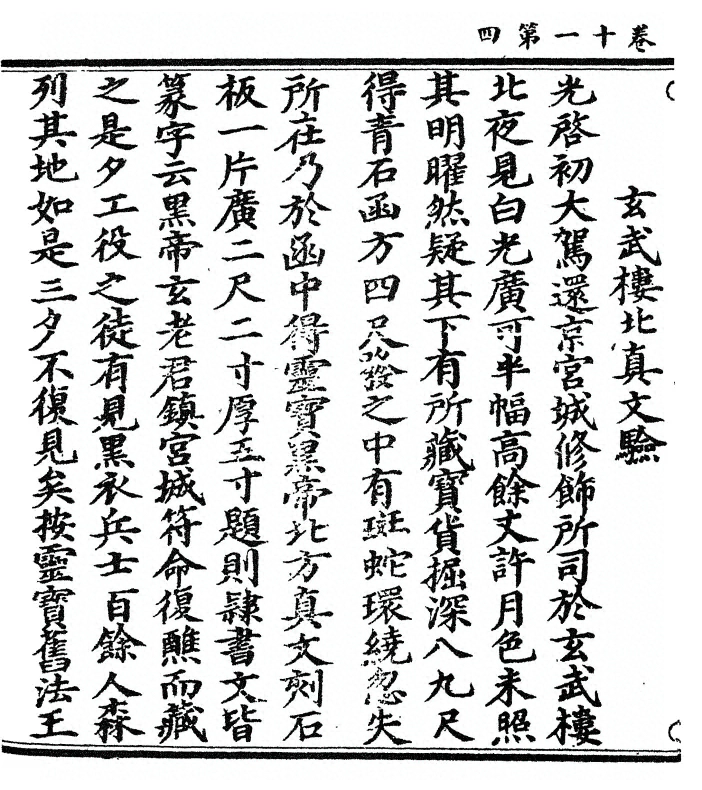 卷十一第四
玄武樓北真文驗
光啓初大駕還京宮城修飾所司於玄武樓
北夜見白光廣可半幅高餘丈許月色未照
其明曜然疑其下有所藏寶貨掘深八九尺
得青石函方四尺發之中有斑蛇環繞忽失
所在乃於函中得靈寶黑帝北方真文刻石
板一片廣二尺二寸厚五寸題則隸書文皆
篆字云黑帝玄老君鎮宮城符命復醮而藏
之是夕工役之徒有見黑衣兵士百餘人森
列其地如是三夕不復見矣按靈寶舊法王